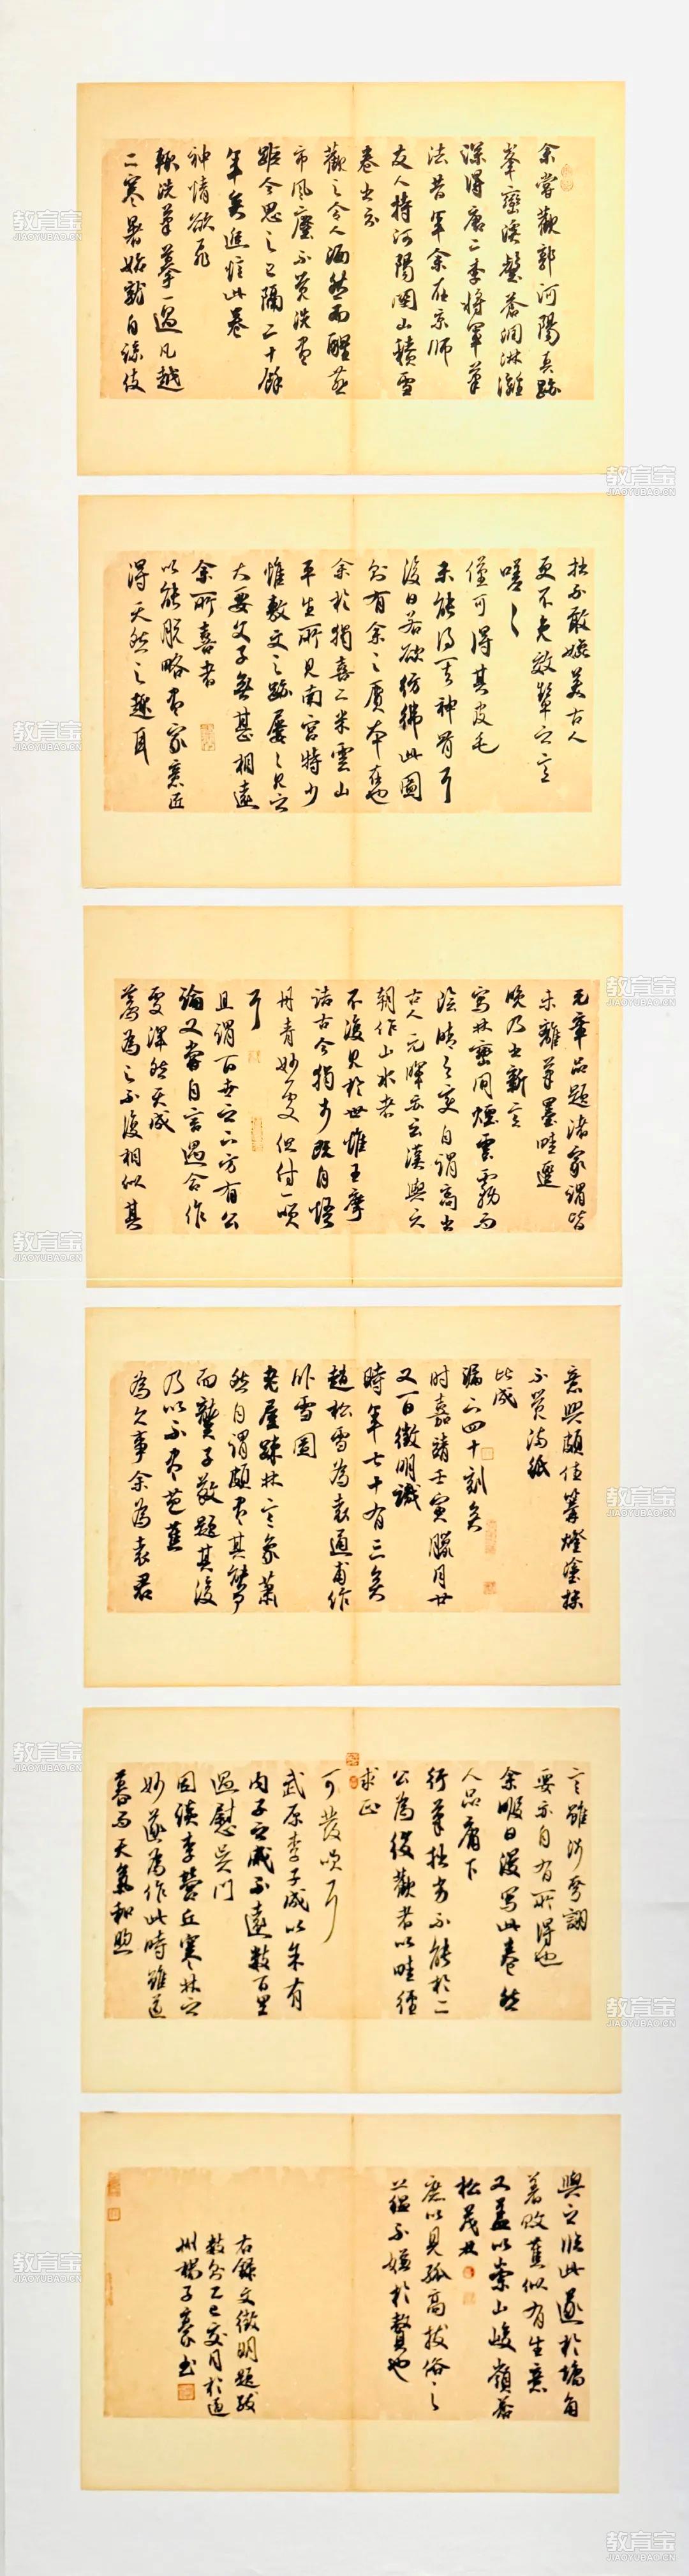 余嘗觀郭河陽真跡
峯巒淡鬱蒼潤淋漓
深得唐二李将軍筆
法昔年余在京師
友人持河陽關山積雪
卷出示
觀之令人洒然而醒燕
市風塵不覺洗盡
距今思之已隔二十餘
年矣追憶此卷
神情欲飛
輒洗筆摹一過凡越
二寒暑始就自諒伎
拙不敢媲美古人
更不免效顰之言
嗟嗟
僅可得其皮毛
未能得其神骨耳
後日若欲彷彿此圖
則有余之贋本在也
余於獨喜二米雲山
平生所見南宮特少
惟敷文之跡屢屢見之
大要父子無甚相遠
余所喜者
以能脱略畫家意匠
得天然之趣耳
元章品題諸家謂皆
未離筆墨畦逕
晚乃出新意
寫林巒間煙雲霧雨
陰晴之變自謂高出
古人元暉亦云漢與六
朝作山水者
不復見於世惟王摩
詰古今獨步既自悟
丹青妙處但付一笑
耳
且謂百世之下方有公
論又嘗自言遇合作
處渾然天成
薦為之不復相似其
意興頗佳篝燈塗抹
不覺満紙
比成
漏下四十刻矣
时嘉靖壬寅臘月廿
又一日徵明識
時年七十有三矣
趙松雪為袁通甫作
卧雪圖
老屋疎林意象蕭
然自謂頗盡其能事
而龔子敬題其後
乃以不畫芭蕉
為欠事余為袁君
言雖涉夸詡
要亦自有所得也
余暇日漫寫此卷然
人品庸下
行筆拙劣不能於二
公為役觀者以畦徑
求正
可發笑耳
武原李子成以朱有
内子之戚不遠數百里
過慰吳門
因談李營丘寒林之
妙遂為作此時雖歲
暮而天氣和煦
與之臨此遂於墻角
著敗蕉似有生意
又益以崇山峻嶺蒼
松茂林
庶以見孤高拔俗之
蘊不嫌於贅也
右録文徵明題跋
数則乙巳交月於通
州楊子豪书
教育宝
JIAOYUBAO.CN